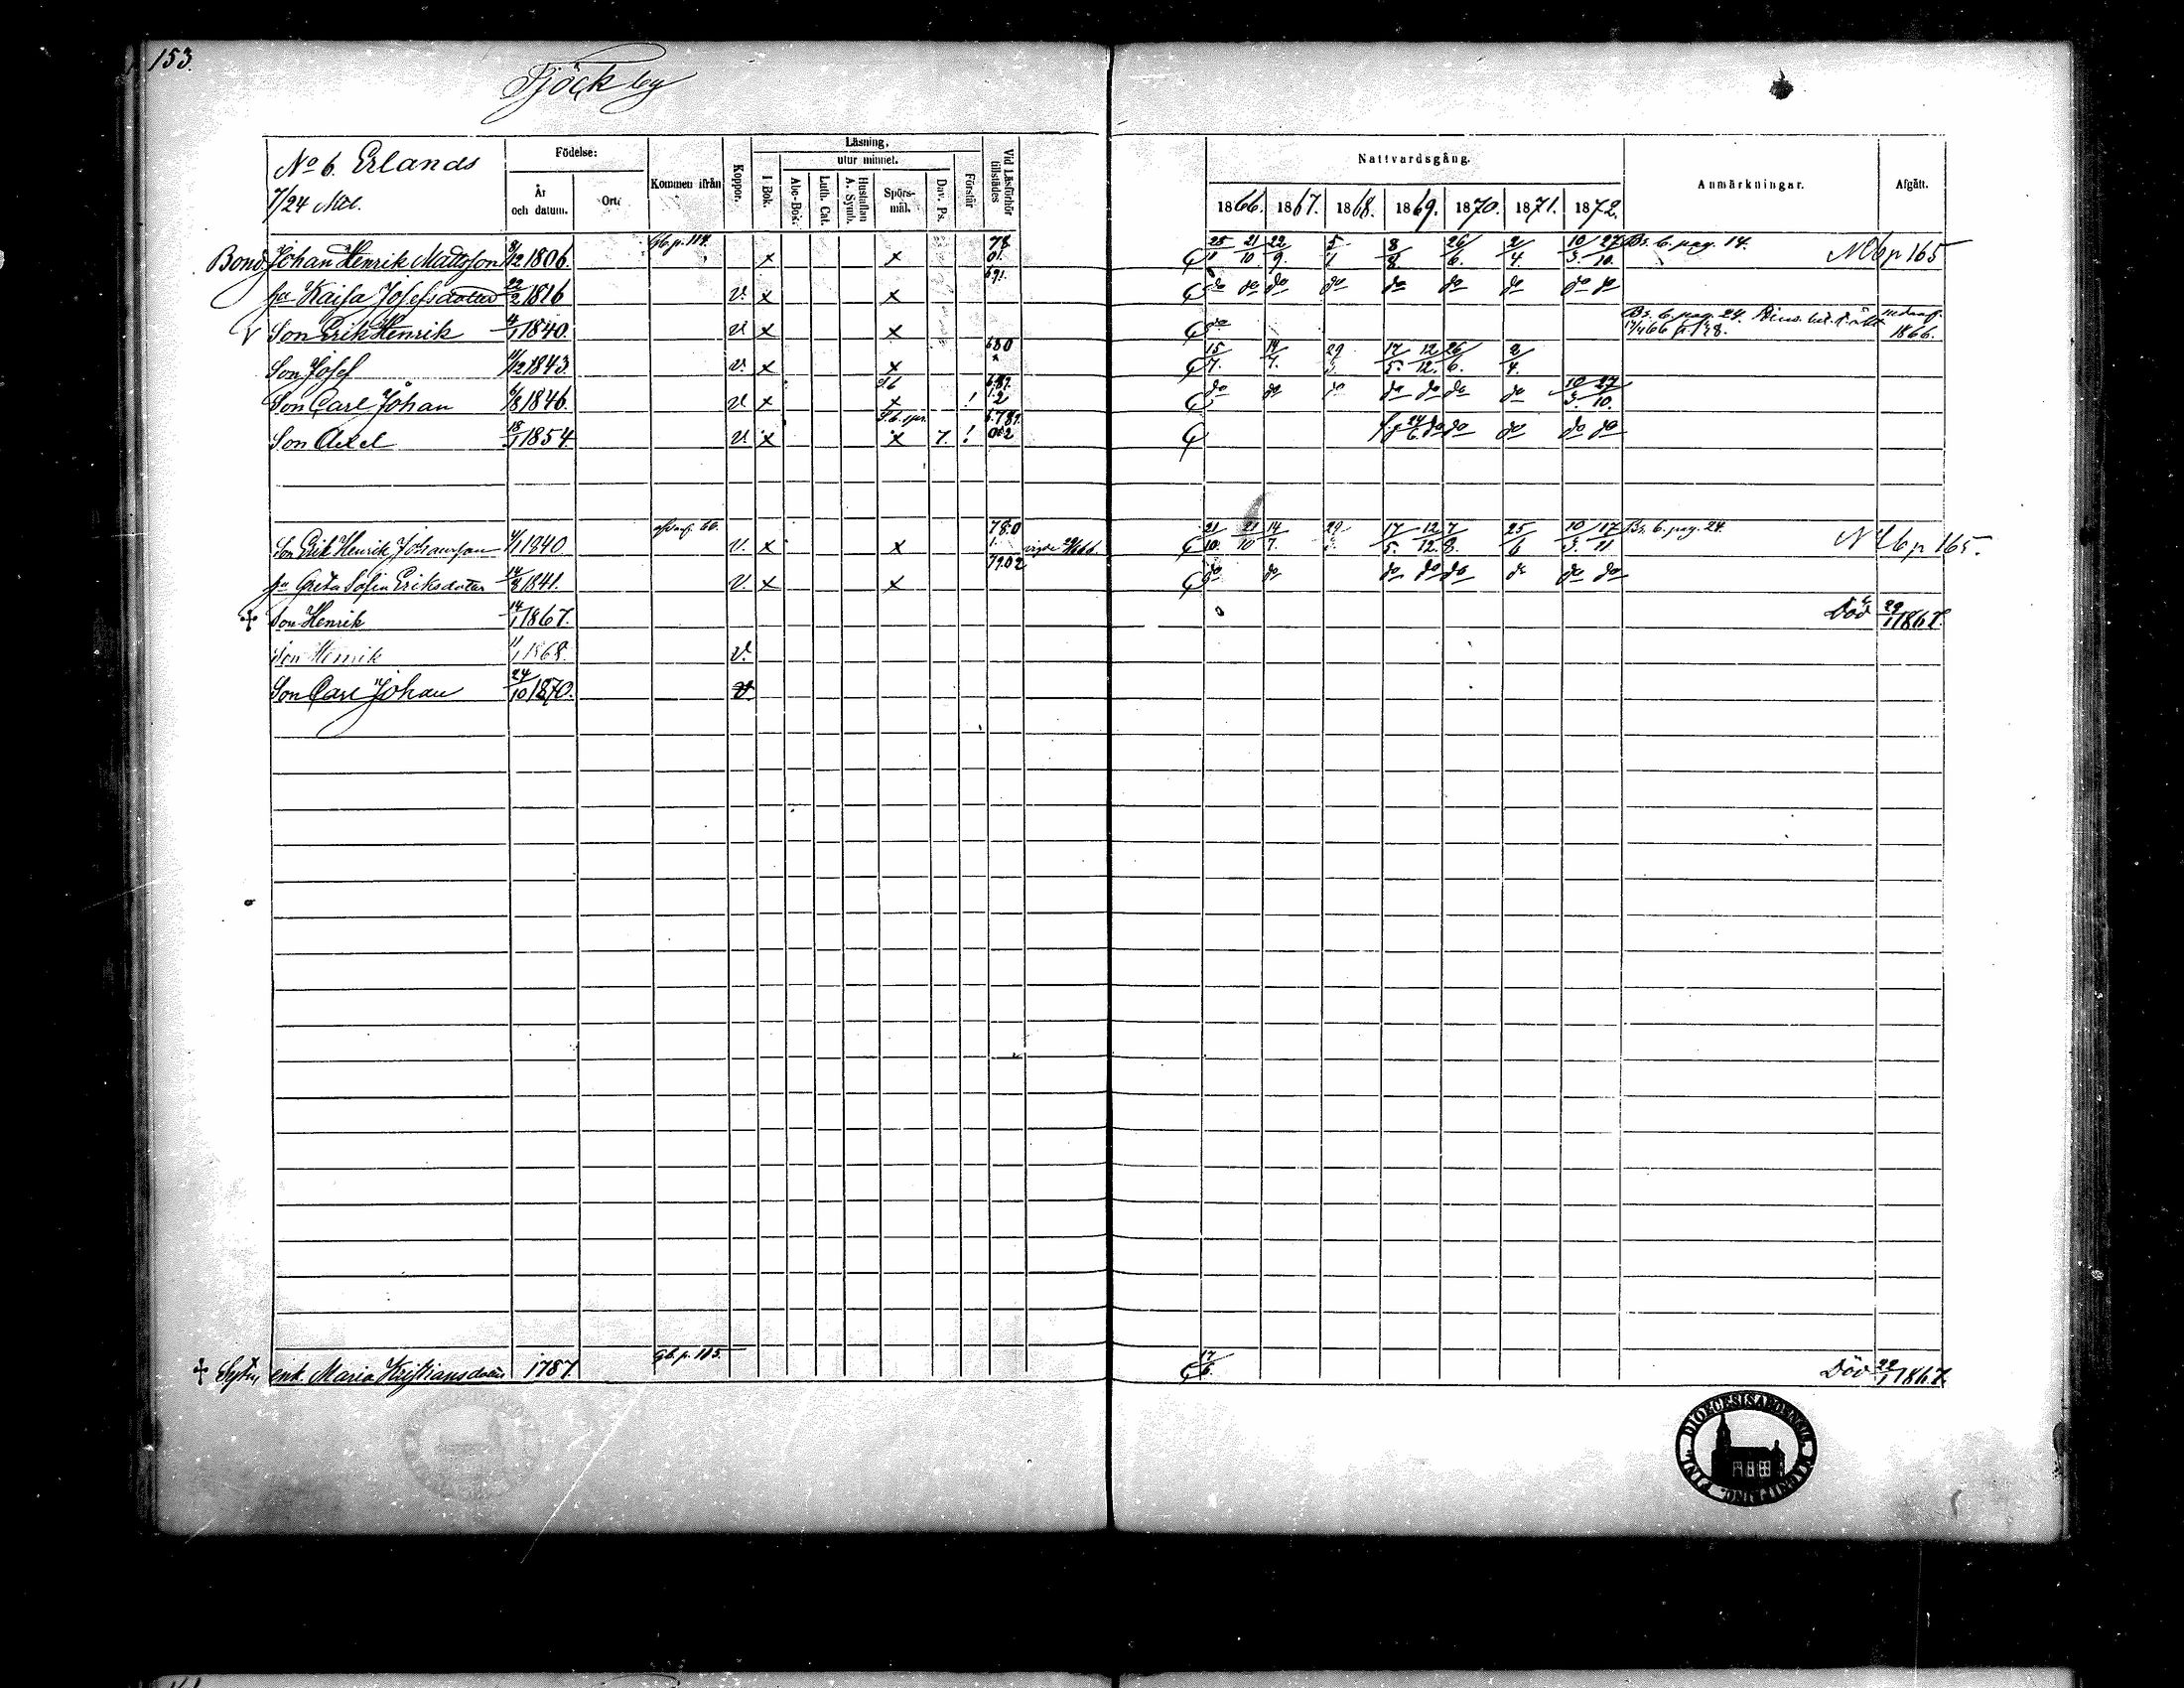 153.
Tjöck by
No 6. Erlands
7/24 Mtl.
Födelse:
År och datum.
Ort.
Kommen ifrån
Koppor.
Läsning.
I Bok.
utur minnet.
Abc-Bok.
Luth. Cat.
Hustaflan A. Symb.
Spörsmål.
Dav. Ps.
Förstår
Vid Läsförhör tillstädes
Nattvardsgång.
1866. 1867. 1868. 1869. 1870. 1871. 1872.
Anmärkningar.
Afgått.
Bond. Johan Henrik Mattsson 8/12 1806. Gb. p. 114. x x 78 01. 25/11 21/10 22/9. 5/1 8/8 26/6. 2/4. 10/3. 27/10. Bs. 6. pag. 14. N Kb p 165
hu Kaisa Josefsdotter 22/2 1816 v. x x 691. do do do do do do do do do
v Son Erik Henrik 4/1 1840. v. x x do Bs. 6. pag. 24. nedanf. 1866.
Son Josef 11/12 1843. v. x x 680 15/7. 14/7. 29 17/5. 12/12. 26/6. 2/4.
Son Carl Johan 6/8 1846. v. x x ! 689. 2 do do do do do do do 10/3. 27/10.
Son Axel 18/1 1854. v. x x 7. ! 6.789. 24/6. do do do do do
Son Erik Henrik Johansson 4/1 1840. v. x x 780 vigde 21/10. 21/10 14/7. 29 17/5. 12/12. 7/8. 25/6 10/3. 17/21 Bs. 6. pag. 24 N Kb p 165.
hu Greta Sofia Eriksdotter 14/8 1841. v. x x 7902 do do do do do do do do
+ Son Henrik 14/1 1867. Död 29/1 1867.
Son Henrik 11/1 1868. v.
Son Carl Johan 24/10 1870. v.
+ enk. Maria Kristiansdotter 1787. Gb. p. 115. 17/6. Död 22/1 1867.
DIOECESIS ABOENSIS